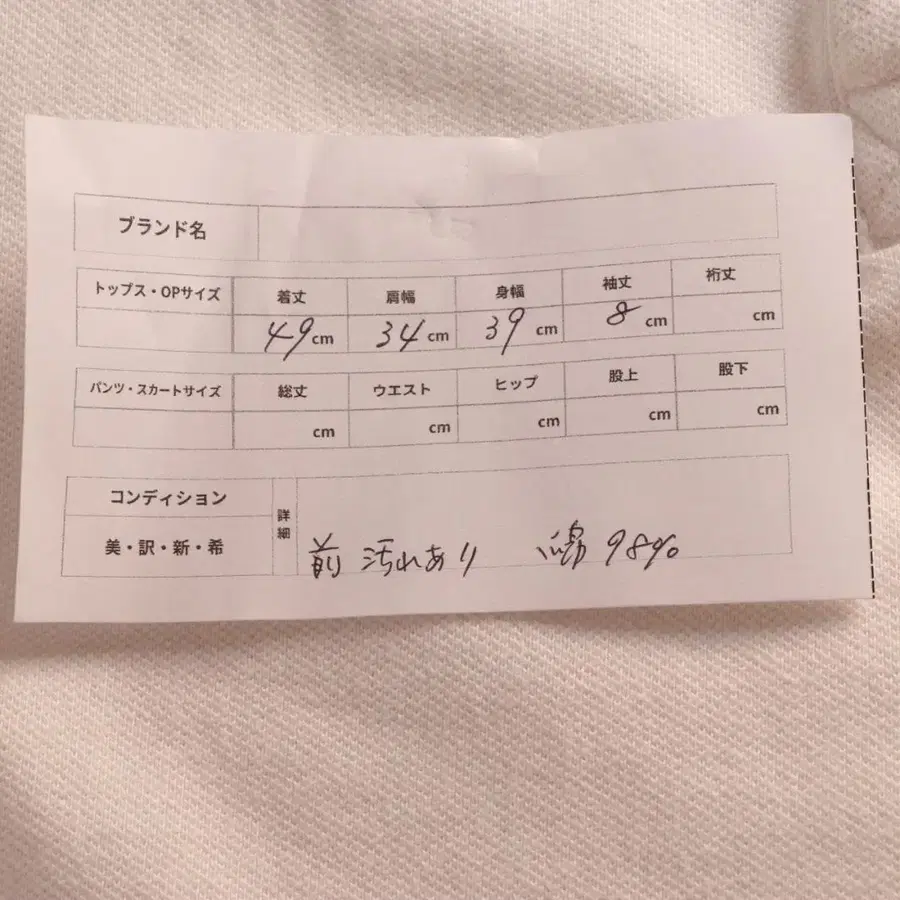 ブランド名
トップス・OPサイズ 着丈 肩幅 身幅 袖丈 裄丈
49cm 34cm 39cm 8cm cm
パンツ・スカートサイズ 総丈 ウエスト ヒップ 股上 股下
cm cm cm cm cm
コンディション 詳細
美・訳・新・希 前 汚れあり 綿 98%